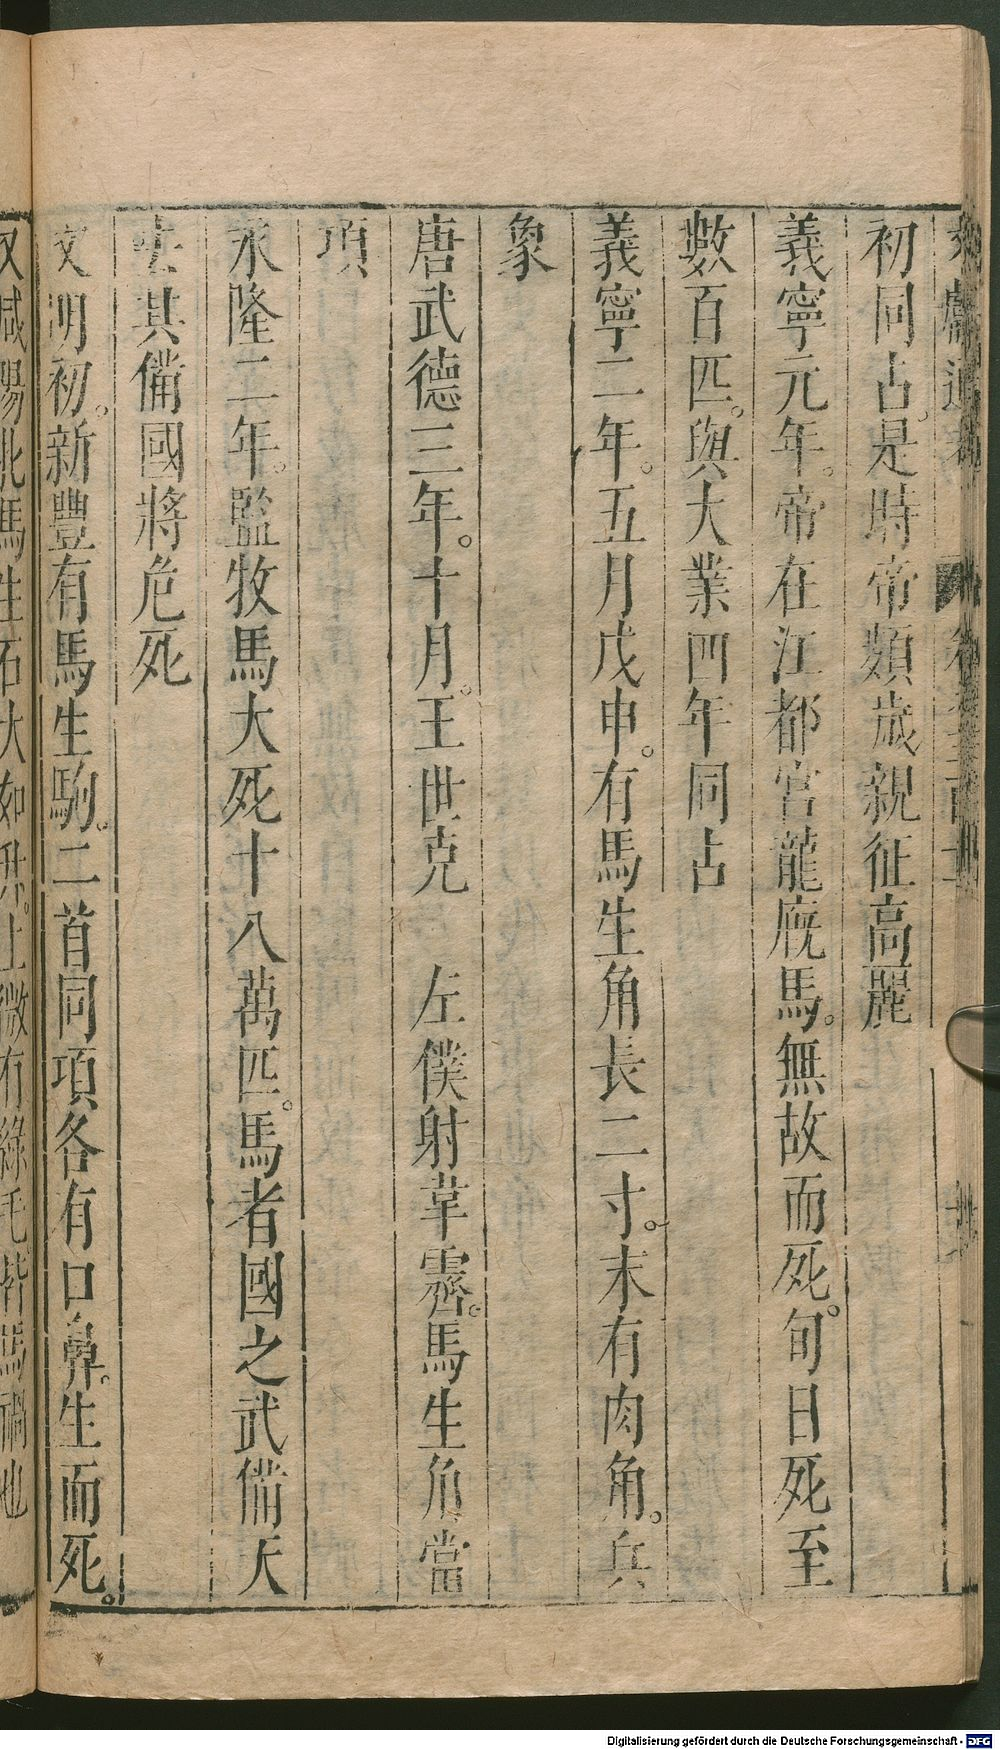 文獻通考 卷三百十一
初同占是時帝頻歲親征高麗
義寧元年帝在江都宮龍廐馬無故而死旬日死至
數百匹與大業四年同占
義寧二年五月戊申有馬生角長二寸末有肉角兵
象
唐武德三年十月王世充 左僕射韋霽馬生角當
項
永隆二年監牧馬大死十八萬匹馬者國之武備天
去其備國將危死
文明初新豐有馬生駒二首同項各有口鼻生而死
又咸陽牝馬生石大如升上微有綠毛皆馬禍也
Digitalisierung gefördert durch die Deutsche Forschungsgemeinschaft - DFG